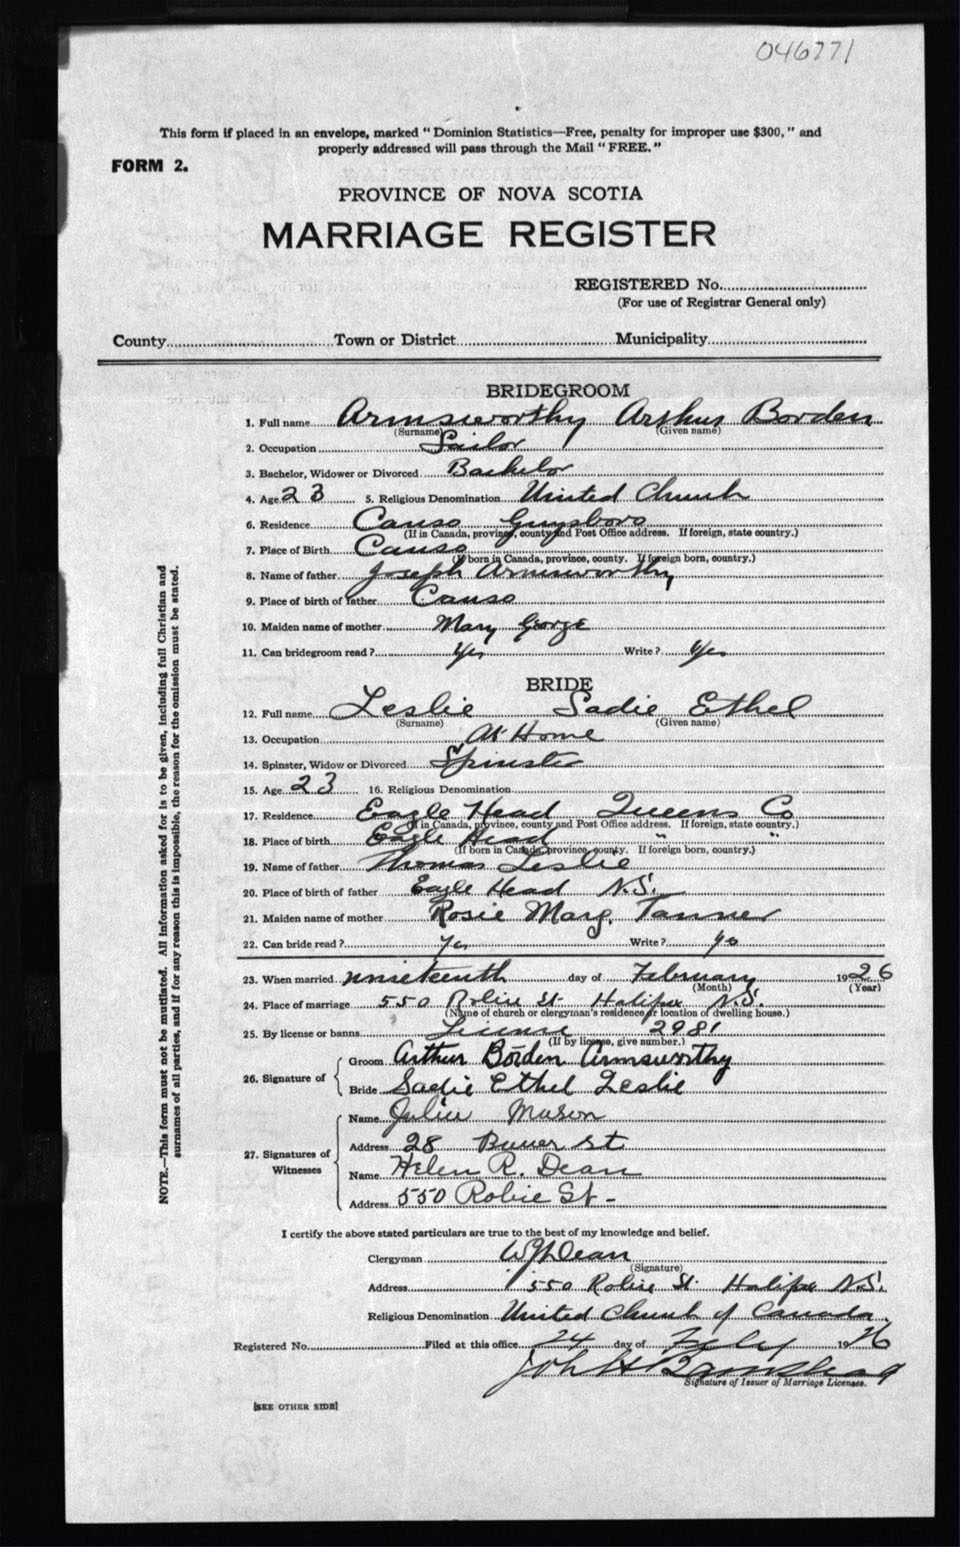 046771
This form if placed in an envelope, marked "Dominion Statistics—Free, penalty for improper use $300," and
properly addressed will pass through the Mail "FREE."
FORM 2.
PROVINCE OF NOVA SCOTIA
MARRIAGE REGISTER
REGISTERED No.
(For use of Registrar General only)
County Town or District Municipality
BRIDEGROOM
1. Full name Armsworthy Arthur Borden
(Surname) (Given name)
2. Occupation Sailor
3. Bachelor, Widower or Divorced Bachelor
4. Age 23 5. Religious Denomination United Church
6. Residence Canso Guysboro
(If in Canada, province, county and Post Office address. If foreign, state country.)
7. Place of Birth Canso
(If born in Canada, province, county. If foreign born, country.)
8. Name of father Joseph Armsworthy
9. Place of birth of father Canso
10. Maiden name of mother Mary George
11. Can bridegroom read? Yes Write? Yes
BRIDE
12. Full name Leslie Sadie Ethel
(Surname) (Given name)
13. Occupation At Home
14. Spinster, Widow or Divorced Spinster
15. Age 23 16. Religious Denomination
17. Residence Eagle Head Queens Co
(If in Canada, province, county and Post Office address. If foreign, state country.)
18. Place of birth Eagle Head " "
(If born in Canada, province, county. If foreign born, country.)
19. Name of father Thomas Leslie
20. Place of birth of father Eagle Head N.S.
21. Maiden name of mother Rosie Marg. Tanner
22. Can bride read? Yes Write? Yes
23. When married nineteenth day of February 1926
(Month) (Year)
24. Place of marriage 550 Robie St Halifax N.S.
(Name of church or clergyman's residence or location of dwelling house.)
25. By license or banns License 2981
(If by license, give number.)
26. Signature of
Groom Arthur Borden Armsworthy
Bride Sadie Ethel Leslie
27. Signatures of Witnesses
Name Mason
Address 28 St
Name Helen R. Dean
Address 550 Robie St-
I certify the above stated particulars are true to the best of my knowledge and belief.
Clergyman Dean
(Signature)
Address 550 Robie St. Halifax N.S.
Religious Denomination United Church of Canada
Registered No. Filed at this office 24 day of 1926
Signature of Issuer of Marriage Licenses.
[SEE OTHER SIDE]
NOTE.—This form must not be mutilated. All information asked for is to be given, including full Christian and
surnames of all parties, and if for any reason this is impossible, the reason for the omission must be stated.